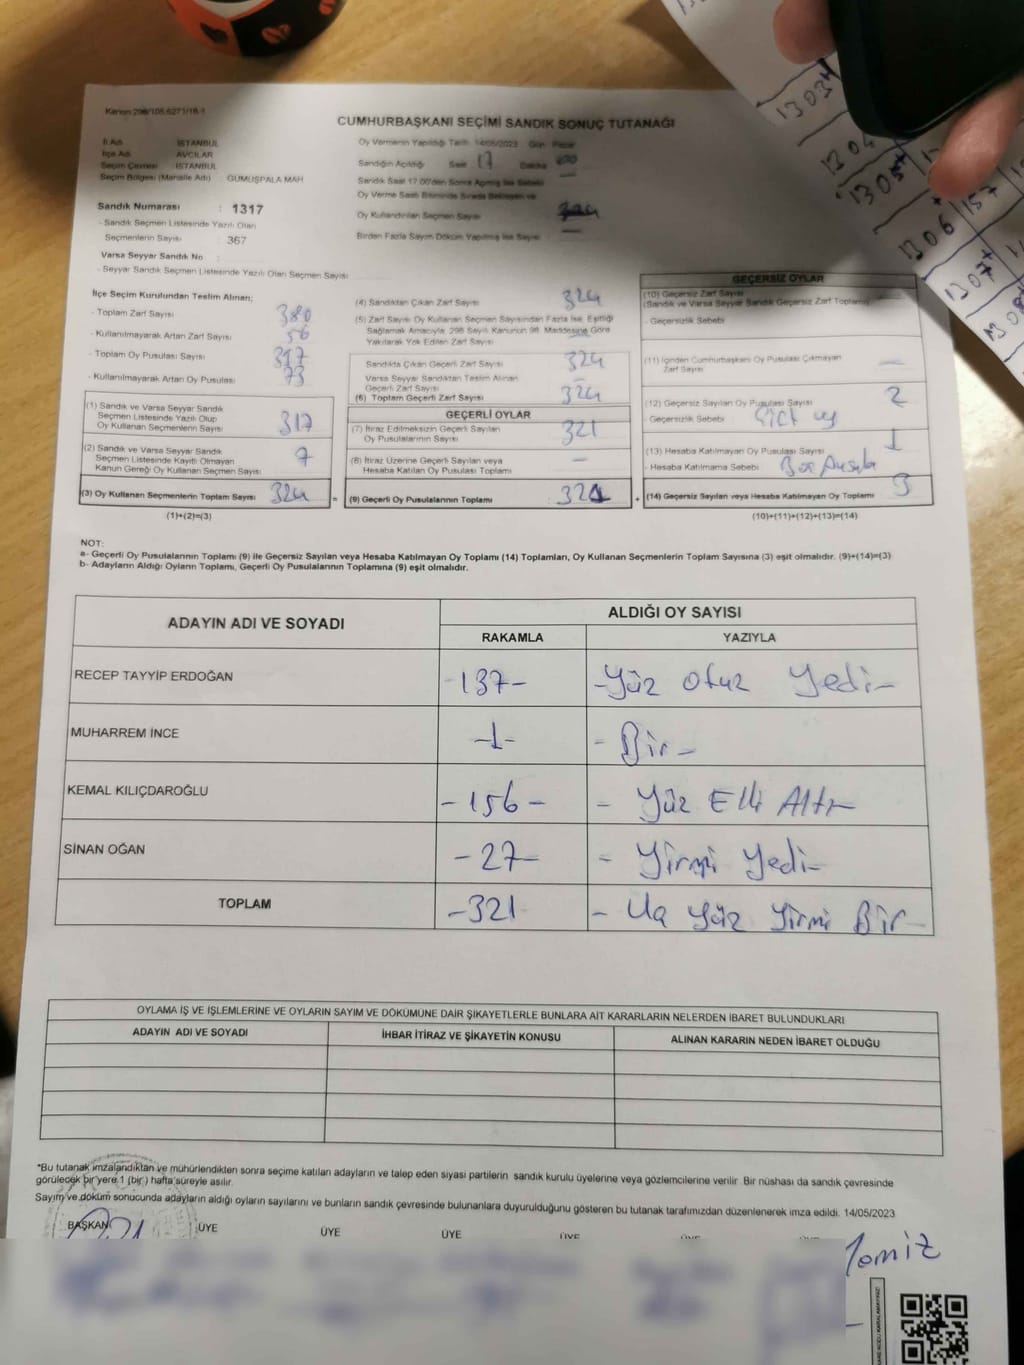 Kanun:298/105,6271/18-1
CUMHURBAŞKANI SEÇİMİ SANDIK SONUÇ TUTANAĞI
İl Adı : İSTANBUL
İlçe Adı : AVCILAR
Seçim Çevresi : İSTANBUL
Seçim Bölgesi (Mahalle Adı) : GÜMÜŞPALA MAH
Sandık Numarası : 1317
- Sandık Seçmen Listesinde Yazılı Olan
Seçmenlerin Sayısı : 367
Varsa Seyyar Sandık No :
- Seyyar Sandık Seçmen Listesinde Yazılı Olan Seçmen Sayısı :
Oy Vermenin Yapıldığı Tarih 14/05/2023 Gün Pazar
Sandığın Açıldığı Saat 17 Dakika
Sandık Saat 17.00'den Sonra Açılmış İse Sebebi
Oy Verme Saati Bitiminde Sırada Bekleyen ve
Oy Kullandırılan Seçmen Sayısı
Birden Fazla Sayım Döküm Yapılmış İse Sayısı —
İlçe Seçim Kurulundan Teslim Alınan;
- Toplam Zarf Sayısı 380
- Kullanılmayarak Artan Zarf Sayısı 56
- Toplam Oy Pusulası Sayısı
- Kullanılmayarak Artan Oy Pusulası 73
(1) Sandık ve Varsa Seyyar Sandık
Seçmen Listesinde Yazılı Olup
Oy Kullanan Seçmenlerin Sayısı 317
(2) Sandık ve Varsa Seyyar Sandık
Seçmen Listesinde Kayıtlı Olmayan
Kanun Gereği Oy Kullanan Seçmen Sayısı 7
(3) Oy Kullanan Seçmenlerin Toplam Sayısı 324 =
(1)+(2)=(3)
(4) Sandıktan Çıkan Zarf Sayısı 324
(5) Zarf Sayısı Oy Kullanan Seçmen Sayısından Fazla İse, Eşitliği
Sağlamak Amacıyla 298 Sayılı Kanunun 98. Maddesine Göre
Yakılarak Yok Edilen Zarf Sayısı —
Sandıkta Çıkan Geçerli Zarf Sayısı 324
Varsa Seyyar Sandıktan Teslim Alınan
Geçerli Zarf Sayısı —
(6) Toplam Geçerli Zarf Sayısı 324
GEÇERLİ OYLAR
(7) İtiraz Edilmeksizin Geçerli Sayılan
Oy Pusulalarının Sayısı 321
(8) İtiraz Üzerine Geçerli Sayılan veya
Hesaba Katılan Oy Pusulası Toplamı —
(9) Geçerli Oy Pusulalarının Toplamı : 321 +
GEÇERSİZ OYLAR
(10) Geçersiz Zarf Sayısı
(Sandık ve Varsa Seyyar Sandık Geçersiz Zarf Toplamı) —
- Geçersizlik Sebebi
(11) İçinden Cumhurbaşkanı Oy Pusulası Çıkmayan
Zarf Sayısı —
(12) Geçersiz Sayılan Oy Pusulası Sayısı 2
- Geçersizlik Sebebi Çift oy
(13) Hesaba Katılmayan Oy Pusulası Sayısı 1
- Hesaba Katılmama Sebebi Boş Pusula
(14) Geçersiz Sayılan veya Hesaba Katılmayan Oy Toplamı 3
(10)+(11)+(12)+(13)=(14)
NOT:
a- Geçerli Oy Pusulalarının Toplamı (9) ile Geçersiz Sayılan veya Hesaba Katılmayan Oy Toplamı (14) Toplamları, Oy Kullanan Seçmenlerin Toplam Sayısına (3) eşit olmalıdır. (9)+(14)=(3)
b- Adayların Aldığı Oyların Toplamı, Geçerli Oy Pusulalarının Toplamına (9) eşit olmalıdır.
ADAYIN ADI VE SOYADI ALDIĞI OY SAYISI
RAKAMLA YAZIYLA
RECEP TAYYİP ERDOĞAN -137- -Yüz Otuz Yedi-
MUHARREM İNCE -1- - Bir -
KEMAL KILIÇDAROĞLU -156- - Yüz Elli Altı-
SİNAN OĞAN -27- - Yirmi Yedi-
TOPLAM -321 - Üç Yüz Yirmi Bir-
OYLAMA İŞ VE İŞLEMLERİNE VE OYLARIN SAYIM VE DÖKÜMÜNE DAİR ŞİKAYETLERLE BUNLARA AİT KARARLARIN NELERDEN İBARET BULUNDUKLARI
ADAYIN ADI VE SOYADI İHBAR İTİRAZ VE ŞİKAYETİN KONUSU ALINAN KARARIN NEDEN İBARET OLDUĞU
*Bu tutanak imzalandıktan ve mühürlendikten sonra seçime katılan adayların ve talep eden siyasi partilerin sandık kurulu üyelerine veya gözlemcilerine verilir. Bir nüshası da sandık çevresinde
görülecek bir yere 1 (bir) hafta süreyle asılır.
Sayım ve döküm sonucunda adayların aldığı oyların sayılarını ve bunların sandık çevresinde bulunanlara duyurulduğunu gösteren bu tutanak tarafımızdan düzenlenerek imza edildi. 14/05/2023
BAŞKAN ÜYE ÜYE ÜYE ÜYE
1303
1304
1305
1306 157
1307
1308